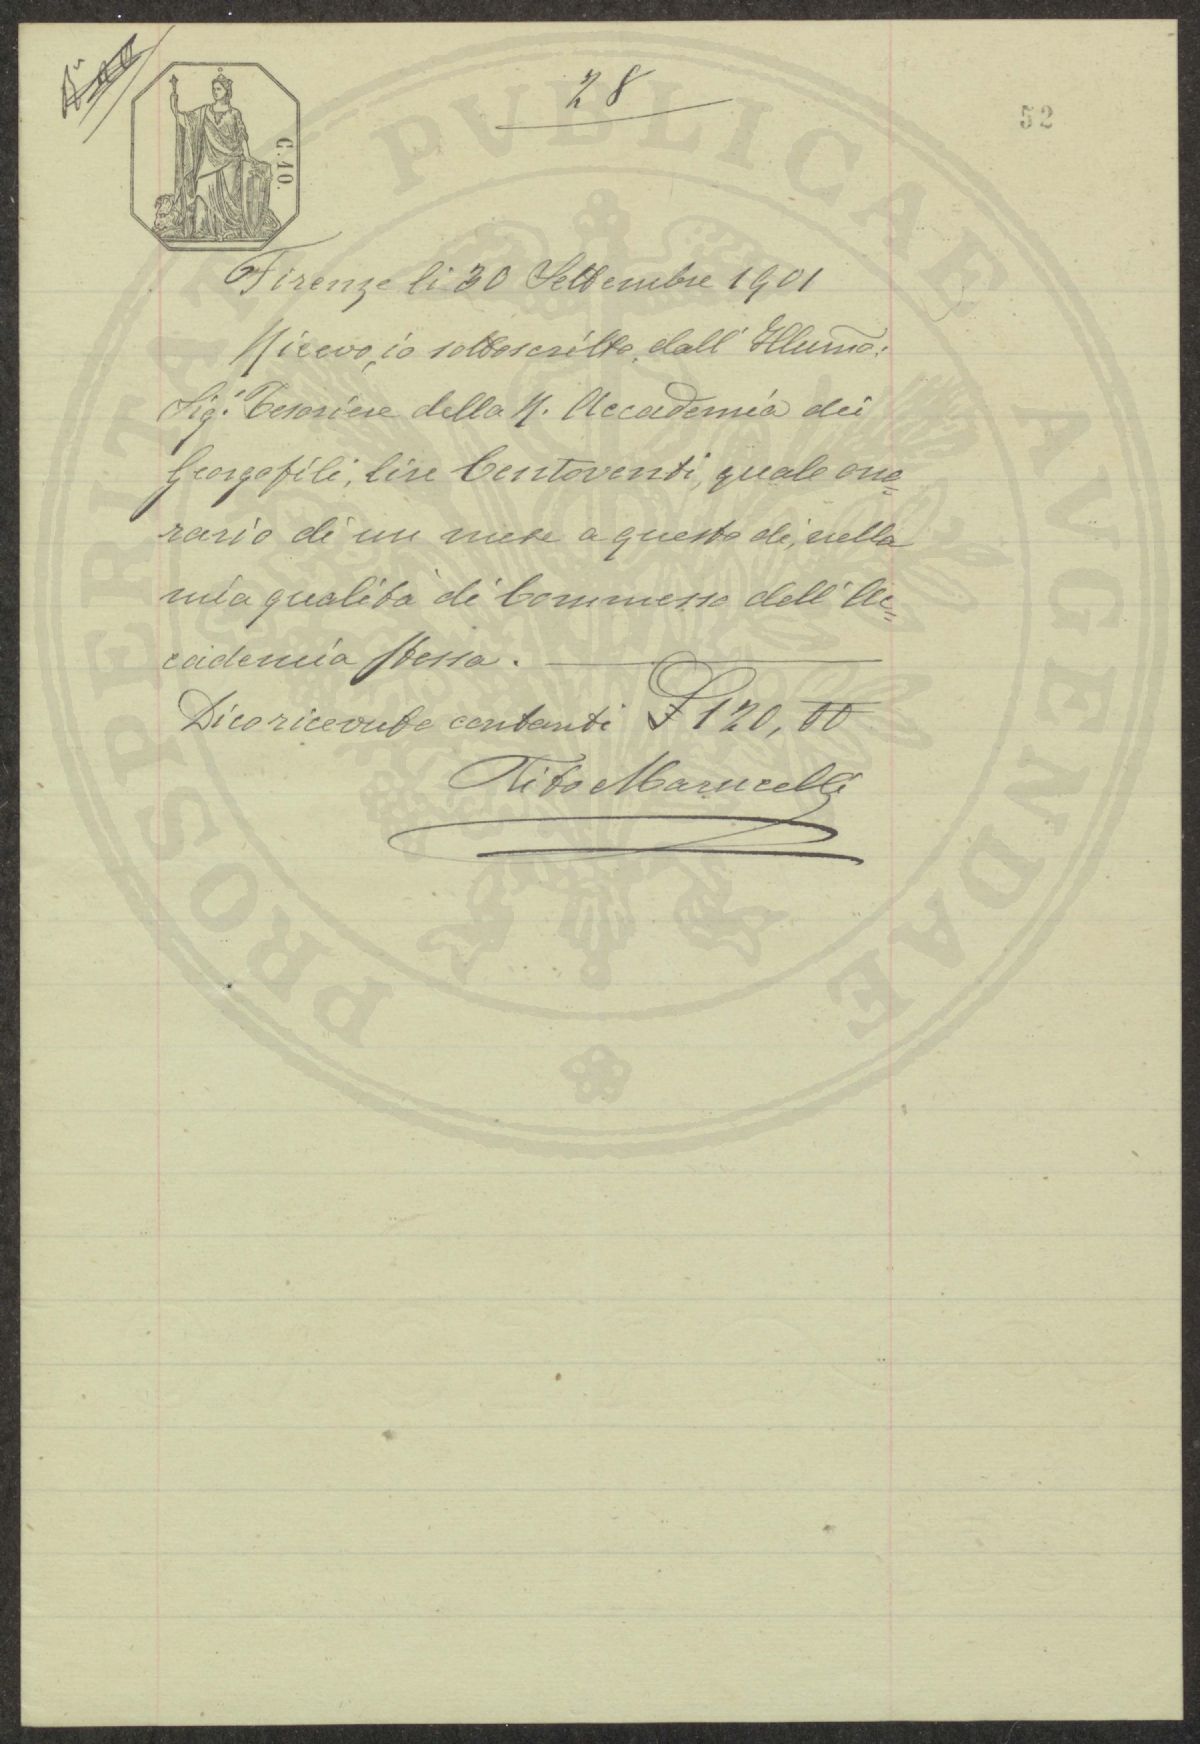 28
52
C. 10.
Firenze li 30 Settembre 1901
Ricevo, io sottoscritto, dall' Illumo:
Sigr. Tesoriere della R. Accademia dei
Georgofili, lire Centoventi, quale ono=
rario di un mese a questo dì, nella
mia qualità di Commesso dell' Ac=
cademia stessa.
Dico ricevute contanti £ 120,00
Tito Marucelli
PROSPERITATI PVBLICAE AVGENDAE